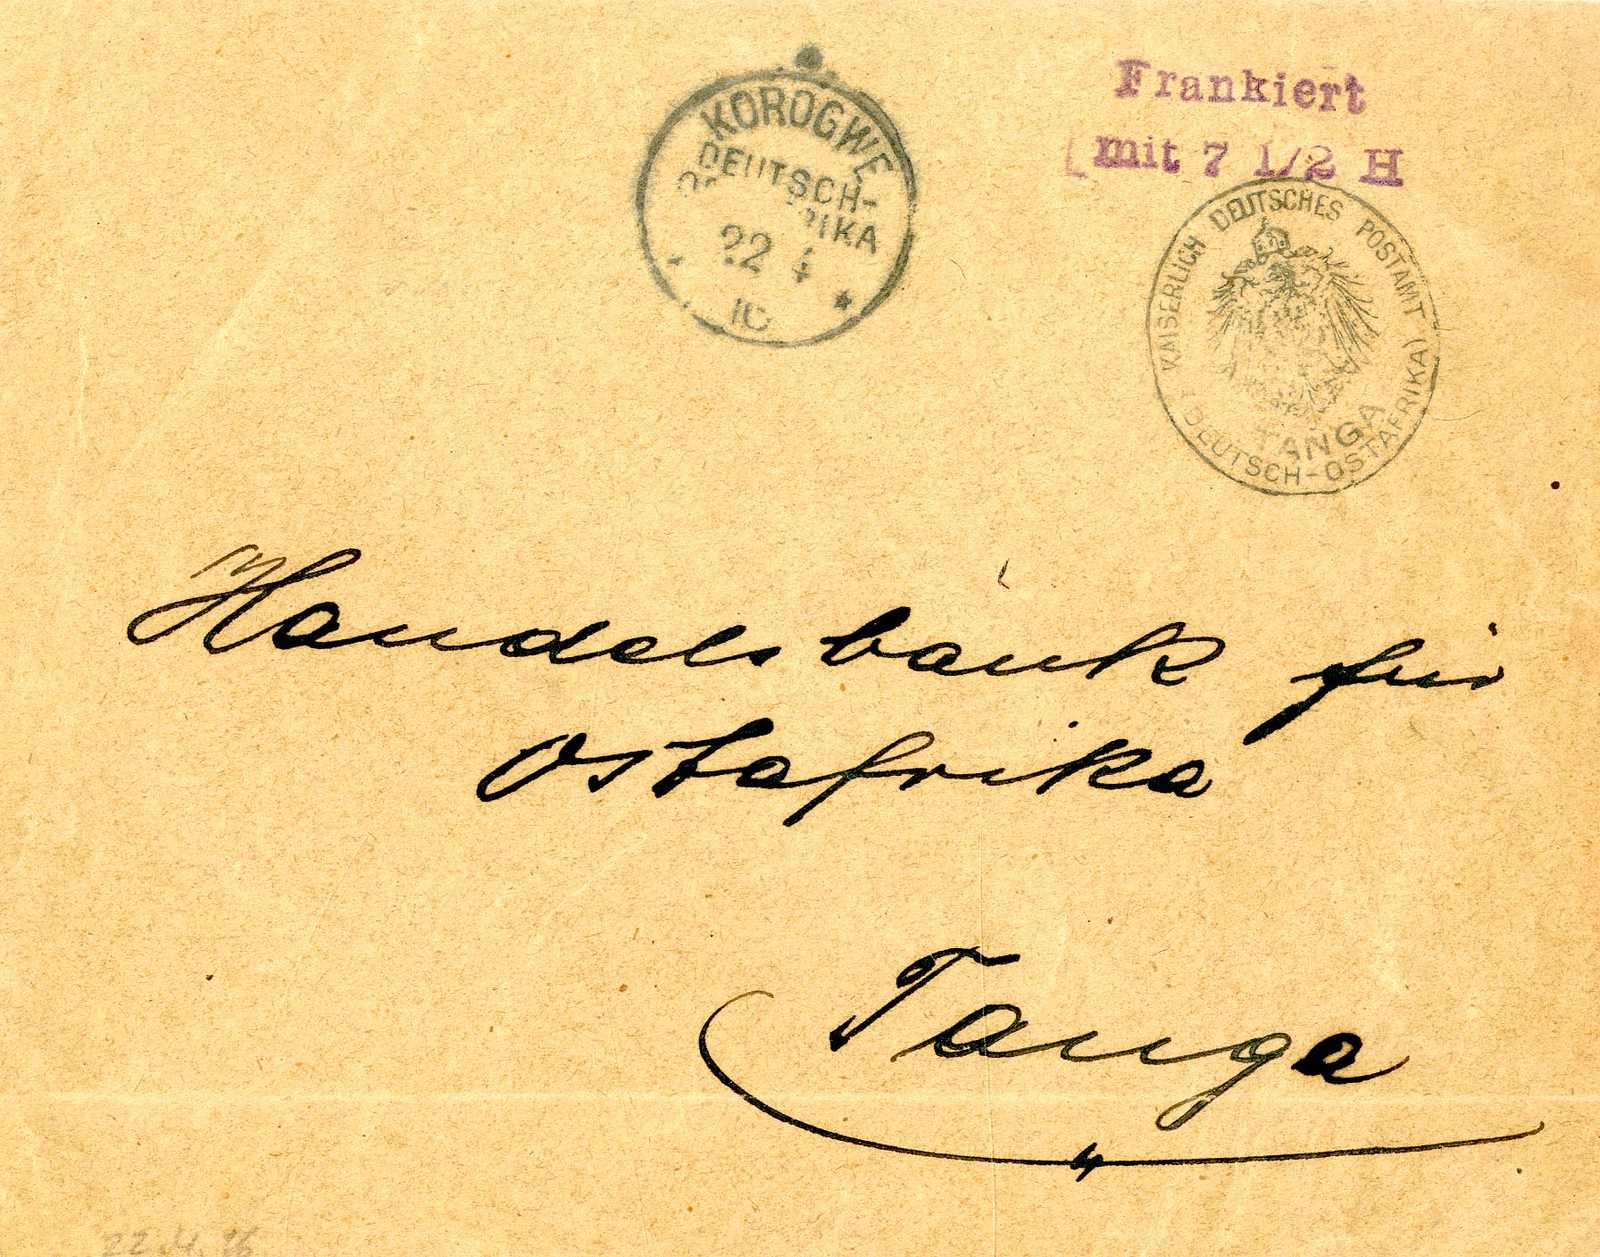 KOROGWE
DEUTSCH-
22 4
Frankiert
mit 7 1/2 H
KAISERLICH DEUTSCHES POSTAMT
TANGA
(DEUTSCH-OSTAFRIKA)
Handelsbank für
Ostafrika
Tanga